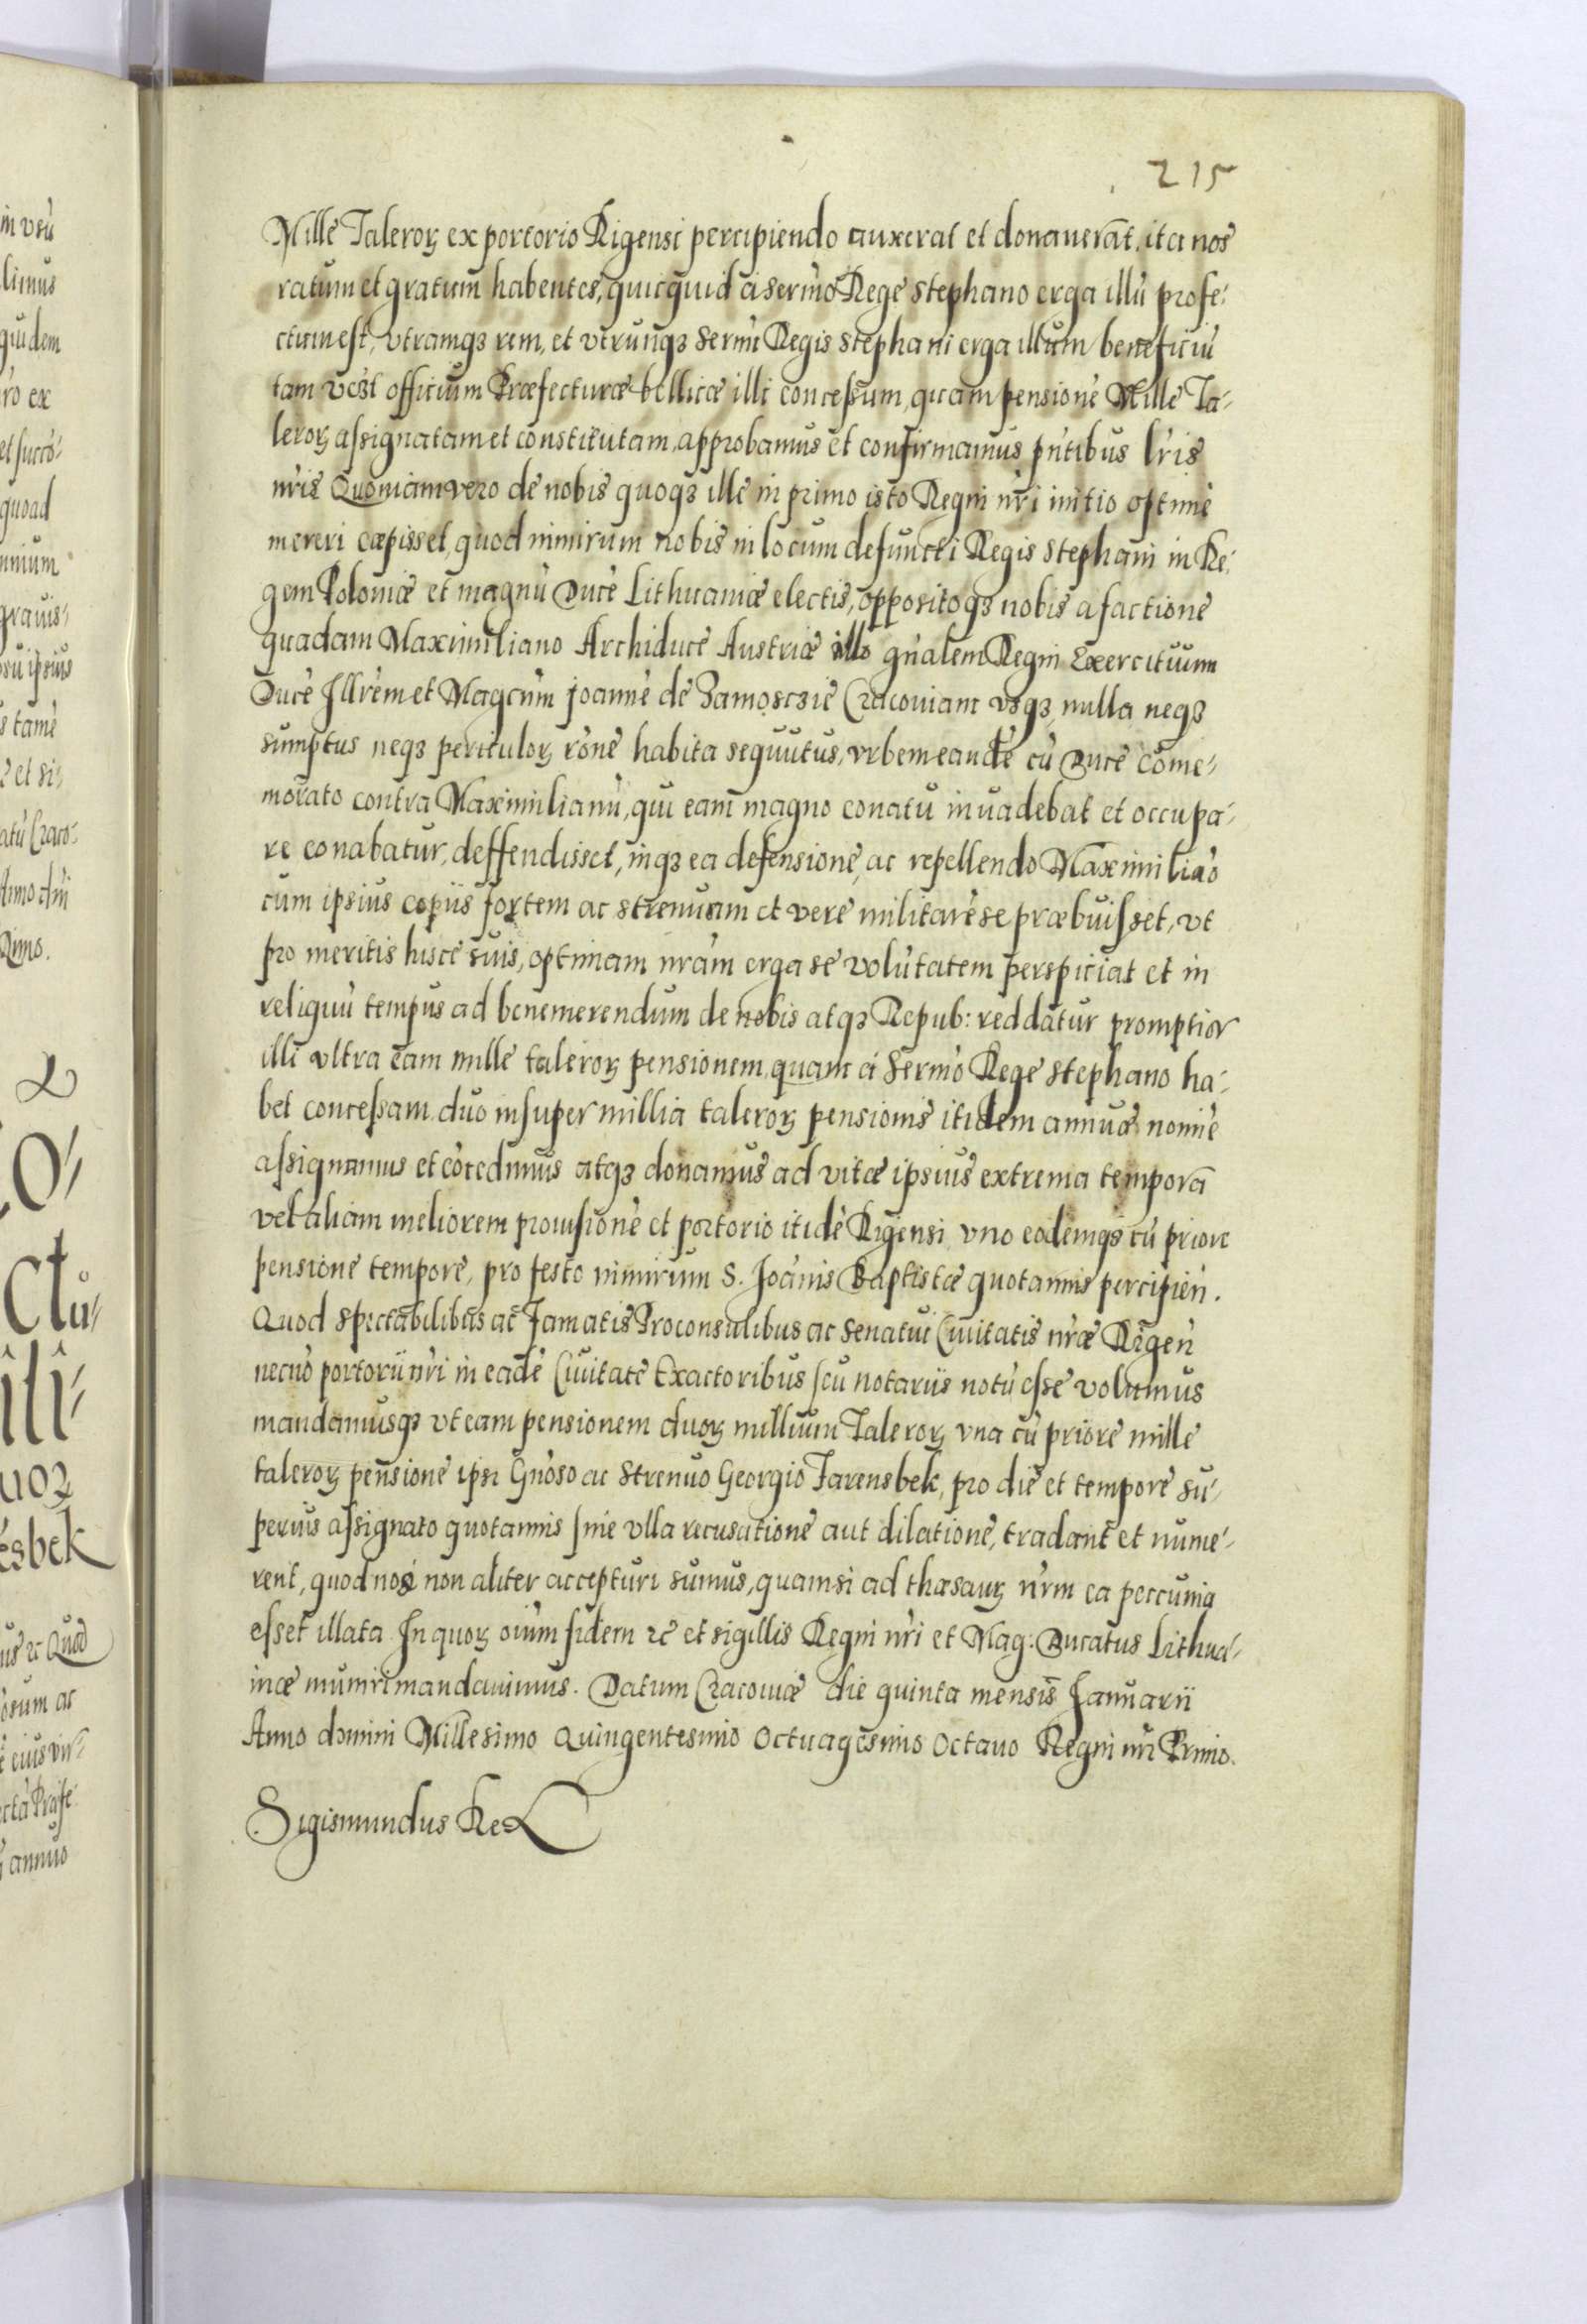 215
Mille Taleroꝝ ex portorio Rigensi percipiendo auxerat et donauerāt, ita nos
ratum et gratum habentes, quicquid a sermo Rege Stephano erga illū profe-
ctum est, vtramqꝫ rem, et vtrunqꝫ sermi Regis Stephani erga illum beneficiū
tam officium Præfecturæ bellicæ illi concessum, quam pensionē Mille Ta-
leroꝝ assignatam et constitutam, approbamus et confirmamus pn̄tibus lr̄is
nr̄is Quoniam vero de nobis quoqꝫ ille in primo isto Regni nr̄i initio optime
mereri cœpisset, quod nimirum nobis in locum defuncti Regis Stephani in Re-
gem Poloniæ et magnū Ducē Lithuaniæ electis, oppositoqꝫ nobis a factione
quadam Maximiliano Archiduce Austriæ illo gn̄alem Regni Exercituum
Ducē Illrēm et Magcūm Joannē de Zamoscsie Cracouiam vsqꝫ, nulla neqꝫ
sumptus neqꝫ periculoꝝ rōne habita sequutus, vrbem eandē cū Duce come-
morato contra Maximilianū, qui eam magno conatu inuadebat et occupa-
re conabatur, deffendisset, inqꝫ ea defensione, ac repellendo Maximiliāo
cum ipsius copiis fortem ac strenuum et vere militarē se præbuisset, vt
pro meritis hisce suis, optimam nrām erga se volūtatem perspiciat et in
reliquū tempus ad benemerendum de nobis atqꝫ Repub: reddatur promptior
illi vltra eam mille taleroꝝ pensionem, quam a Sermo Rege Stephano ha-
bet concessam, duo insuper millia taleroꝝ pensionis itidem annuæ nomīe
assignamus et cōcedimus atqꝫ donamus ad vitæ ipsius extrema tempora
vel aliam meliorem prouisionē et portorio itidē Rigensi vno eodemqꝫ cū priore
pensione tempore, pro festo nimirum S. Joānis Baptistæ quotannis percipien̄.
Quod spectabilibus ac Famatis Proconsulibus ac Senatui Ciuitatis nr̄æ Rigen̄
necnō portorii nr̄i in eadē Ciuitate Exactoribus seu notariis notū esse volumus
mandamusqꝫ vt eam pensionem duoꝝ millium Taleroꝝ vna cū priore mille
taleroꝝ pensione ipsi Gn̄oso ac Strenuo Georgio Farensbek, pro die et tempore su-
perius assignato quotannis sine vlla recusatione aut dilatione, tradant et nume-
rent, quod nos non aliter accepturi sumus, quam si ad thæsauꝝ nr̄m ea peccunia
esset illata In quoꝝ oīum fidem ꝛc et sigillis Regni nr̄i et Mag: Ducatus Lithua-
niæ muniri mandauimus. Datum Cracouiæ die quinta mensis Januarii
Anno domini Millesimo Quingentesimo Octuagesimo Octauo Regni nr̄i Primo.
Sigismundus Rex